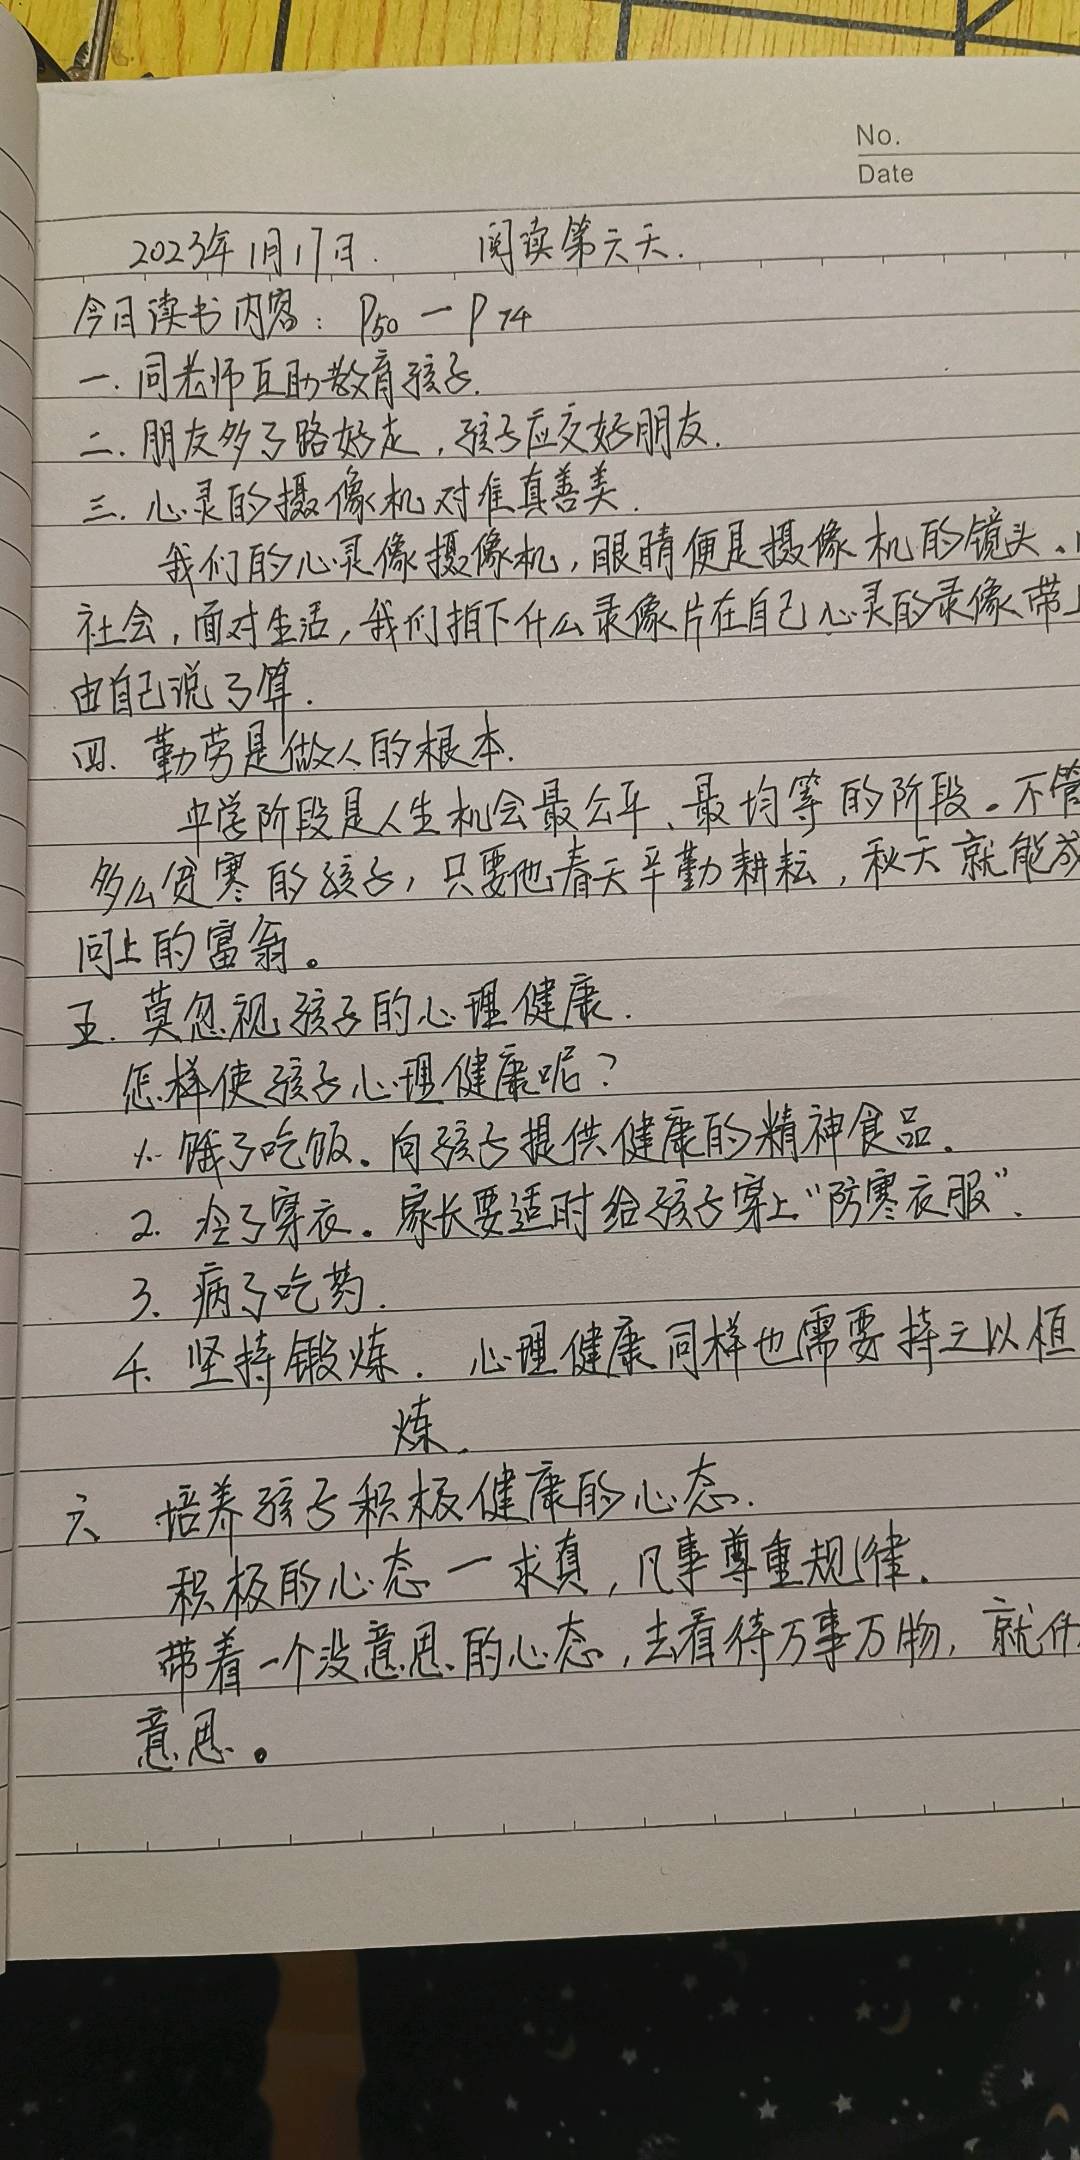 No.
Date
2023年1月17日. 阅读第六天.
今日读书内容: P50一P74
一.同老师互助教育孩子.
二.朋友多了路好走,孩子应交好朋友.
三.心灵的摄像机对准真善美.
我们的心灵像摄像机,眼睛便是摄像机的镜头、
社会,面对生活,我们拍下什么录像片在自己心灵的录像带上
由自己说了算.
四.勤劳是做人的根本.
求学阶段是人生机会最公平、最均等的阶段。不管
多么贫寒的孩子,只要他春天辛勤耕耘,秋天就能成
问上的富翁。
五.莫忽视孩子的心理健康.
怎样使孩子心理健康呢?
1.饿了吃饭。向孩子提供健康的精神食品.
2.冷了穿衣。家长要适时给孩子穿上“防寒衣服”.
3.病了吃药.
4.坚持锻炼. 心理健康同样也需要持之以恒
炼.
六 培养孩子积极健康的心态.
积极的心态一求真,凡事尊重规律.
带着一个没意思的心态,去看待万事万物,就什
意思。